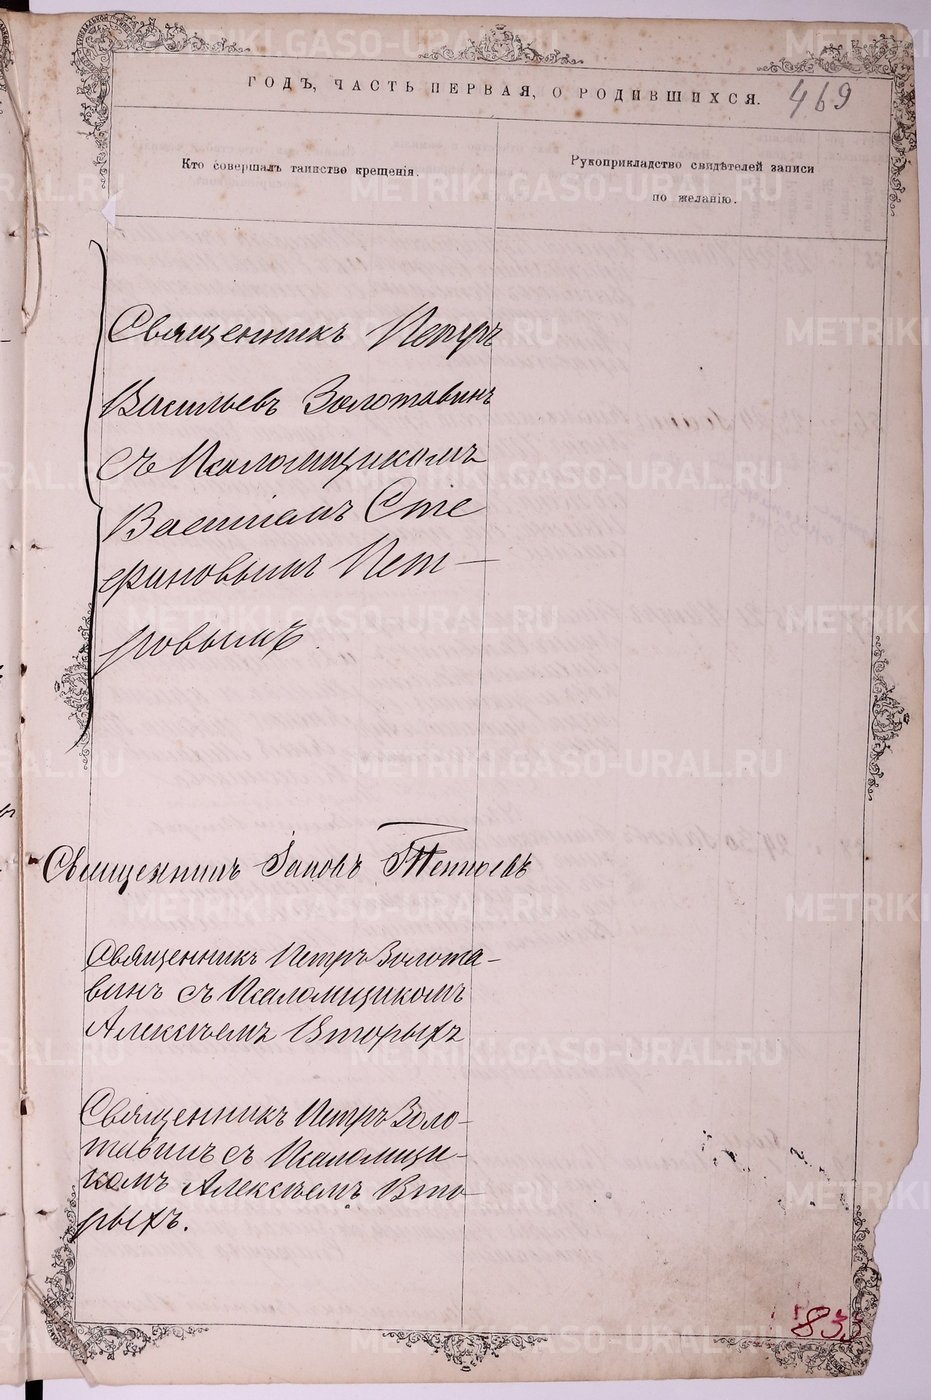 ГОДЪ, ЧАСТЬ ПЕРВАЯ, О РОДИВШИХСЯ.
469
Кто совершалъ таинство крещенія.
Рукоприкладство свидѣтелей записи
по желанію.
Священникъ Петръ
Васильевъ Золотавинъ
съ Псаломщикомъ
Васіліемъ Сте
фановымъ Пет-
ровымъ.
Священникъ Іаковъ
Священникъ Петръ Золота-
винъ съ Псаломщикомъ
Алексѣемъ Вторыхъ
Священникъ Петръ Золо-
тавинъ съ Псаломщи-
комъ Алексѣемъ Вто-
рыхъ.
METRIKI.GASO-URAL.RU